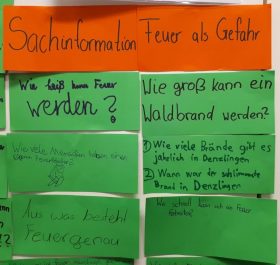 Sachinformation
Feuer als Gefahr
Wie heiß kann Feuer
werden?
Wie groß kann ein
Waldbrand werden?
Wie viele Menschen haben
1) Wie viele Brände gibt es
jährlich in Denzlingen
2) Wann war der schlimmste
Brand in Denzlingen
Aus was besteht
Feuer genau
Wie schnell kann sich ein Feuer